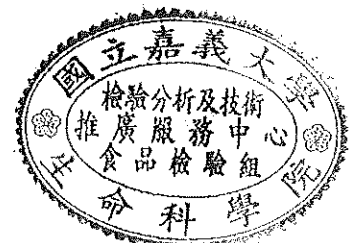 國立嘉義大學
檢驗分析及技術
推廣服務中心
食品檢驗組
生命科學院